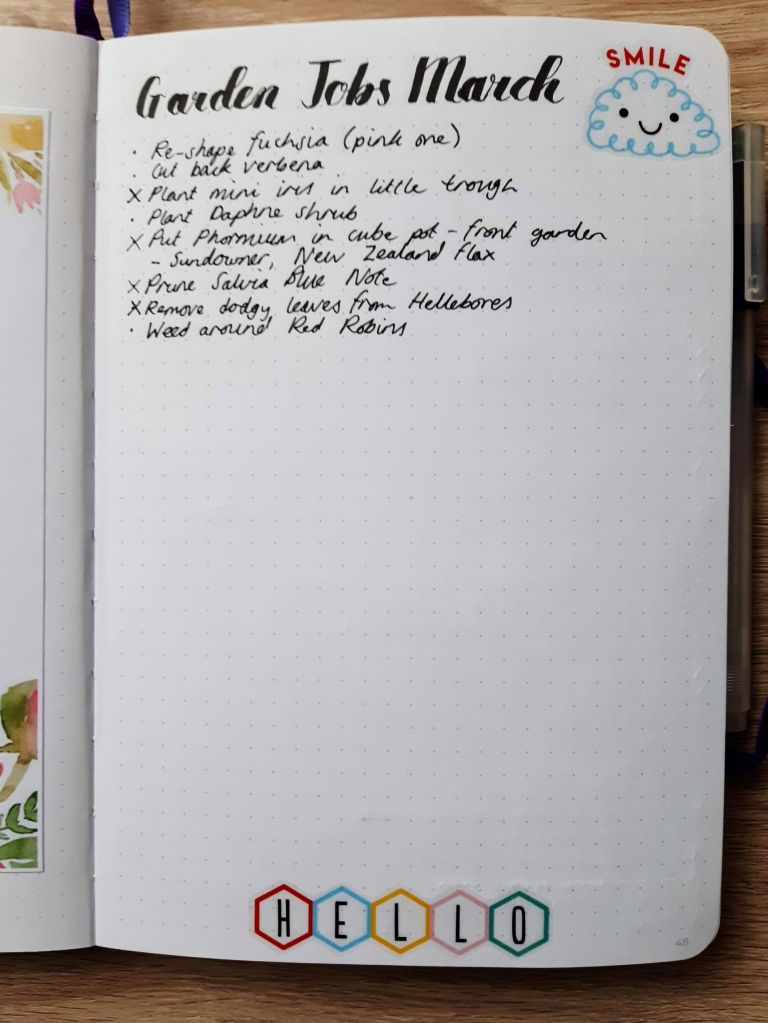 SMILE
Garden Jobs March
· Re-shape fuchsia (pink one)
· Cut back verbena
x Plant mini iris in little trough
· Plant Daphne shrub
x Put Phormium in cube pot - front garden
- Sundowner, New Zealand Flax
x Prune Salvia Blue Note
x Remove dodgy leaves from Hellebores
· Weed around Red Robins
HELLO
48